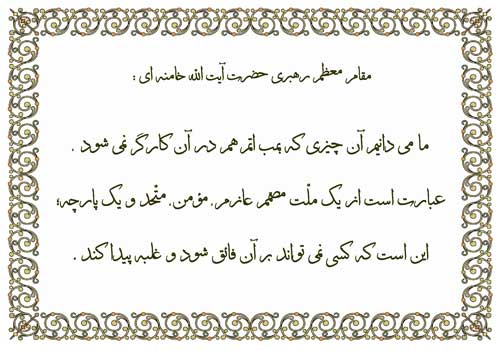 مقام معظم رهبری حضرت آیت الله خامنه ای :
ما می دانیم آن چیزی که بمب اتم هم در آن کارگر نمی شود .
عبارت است از یک ملّت مصمّم عازم، مؤمن، متّحد و یک پارچه؛
این است که کسی نمی تواند بر آن فائق شود و غلبه پیدا کند .